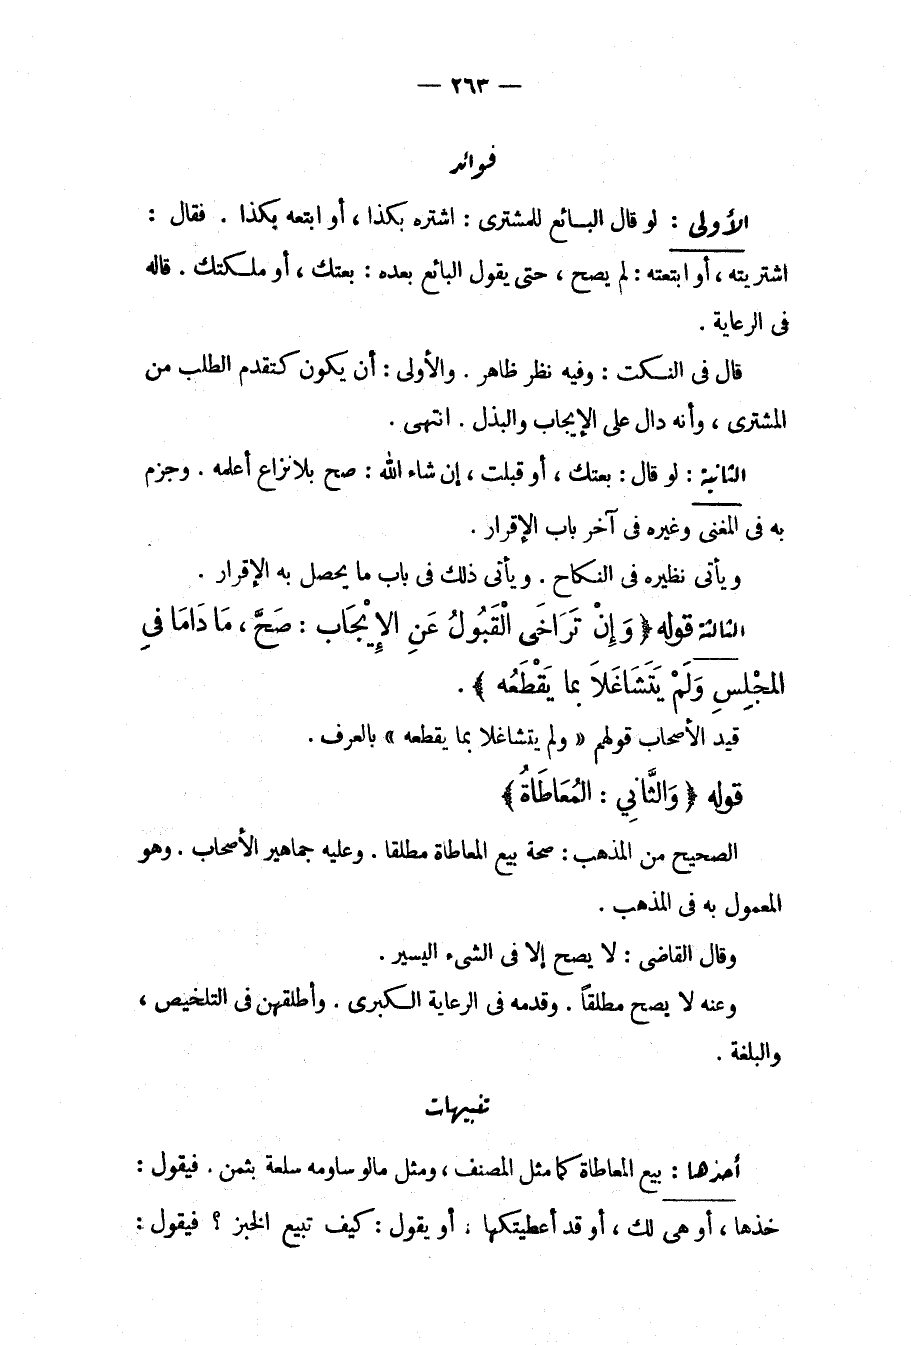 — ٢٦٣ —
فوائد
الأولى : لو قال البائع للمشترى : اشتره بكذا ، أو ابتعه بكذا . فقال :
اشتريته ، أو ابتعته : لم يصح ، حتى يقول البائع بعده : بعتك ، أو ملكتك . قاله
فى الرعاية .
قال فى النكت : وفيه نظر ظاهر . والأولى : أن يكون كتقدم الطلب من
المشترى ، وأنه دال على الإيجاب والبذل . انتهى .
الثانية : لو قال : بعتك ، أو قبلت ، إن شاء الله : صح بلا نزاع أعلمه . وجزم
به فى المغنى وغيره فى آخر باب الإقرار .
ويأتى نظيره فى النكاح . ويأتى ذلك فى باب ما يحصل به الإقرار .
الثالثة قوله ﴿ وَإِنْ تَرَاخَى الْقَبُولُ عَنِ الإِيْجَاب : صَحَّ ، مَا دَامَا فىِ
المجْلِسِ وَلَمْ يَتَشَاغَلاَ بما يَقْطَعُه ﴾ .
قيد الأصحاب قولهم « ولم يتشاغلا بما يقطعه » بالعرف .
قوله ﴿ وَالثَّانِي : المُعَاطَاةُ ﴾
الصحيح من المذهب : صحة بيع المعاطاة مطلقا . وعليه جماهير الأصحاب . وهو
المعمول به فى المذهب .
وقال القاضى : لا يصح إلا فى الشىء اليسير .
وعنه لا يصح مطلقاً . وقدمه فى الرعاية الكبرى . وأطلقهن فى التلخيص ،
والبلغة .
تنبيهات
أحدها : بيع المعاطاة كما مثل المصنف ، ومثل مالو ساومه سلعة بثمن . فيقول :
خذها ، أو هى لك ، أو قد أعطيتكها ، أو يقول : كيف تبيع الخبز ؟ فيقول :